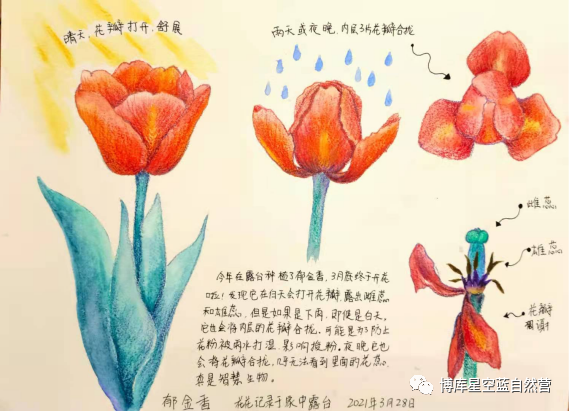 晴天,花瓣打开,舒展
雨天或夜晚,内层3片花瓣合拢
雌蕊
雄蕊
花瓣
凋谢
今年在露台种植了郁金香,3月底终于开花
啦!发现它在白天会打开花瓣露出雌蕊
和雄蕊,但是如果是下雨,即使是白天,
它也会将内层的花瓣合拢。可能是为了防止
花粉被雨水打湿,影响授粉。夜晚它也
会将花瓣合拢,无法看到里面的花蕊。
真是智慧生物。
郁金香 花花记录于家中露台 2021年3月28日
博库星空蓝自然营